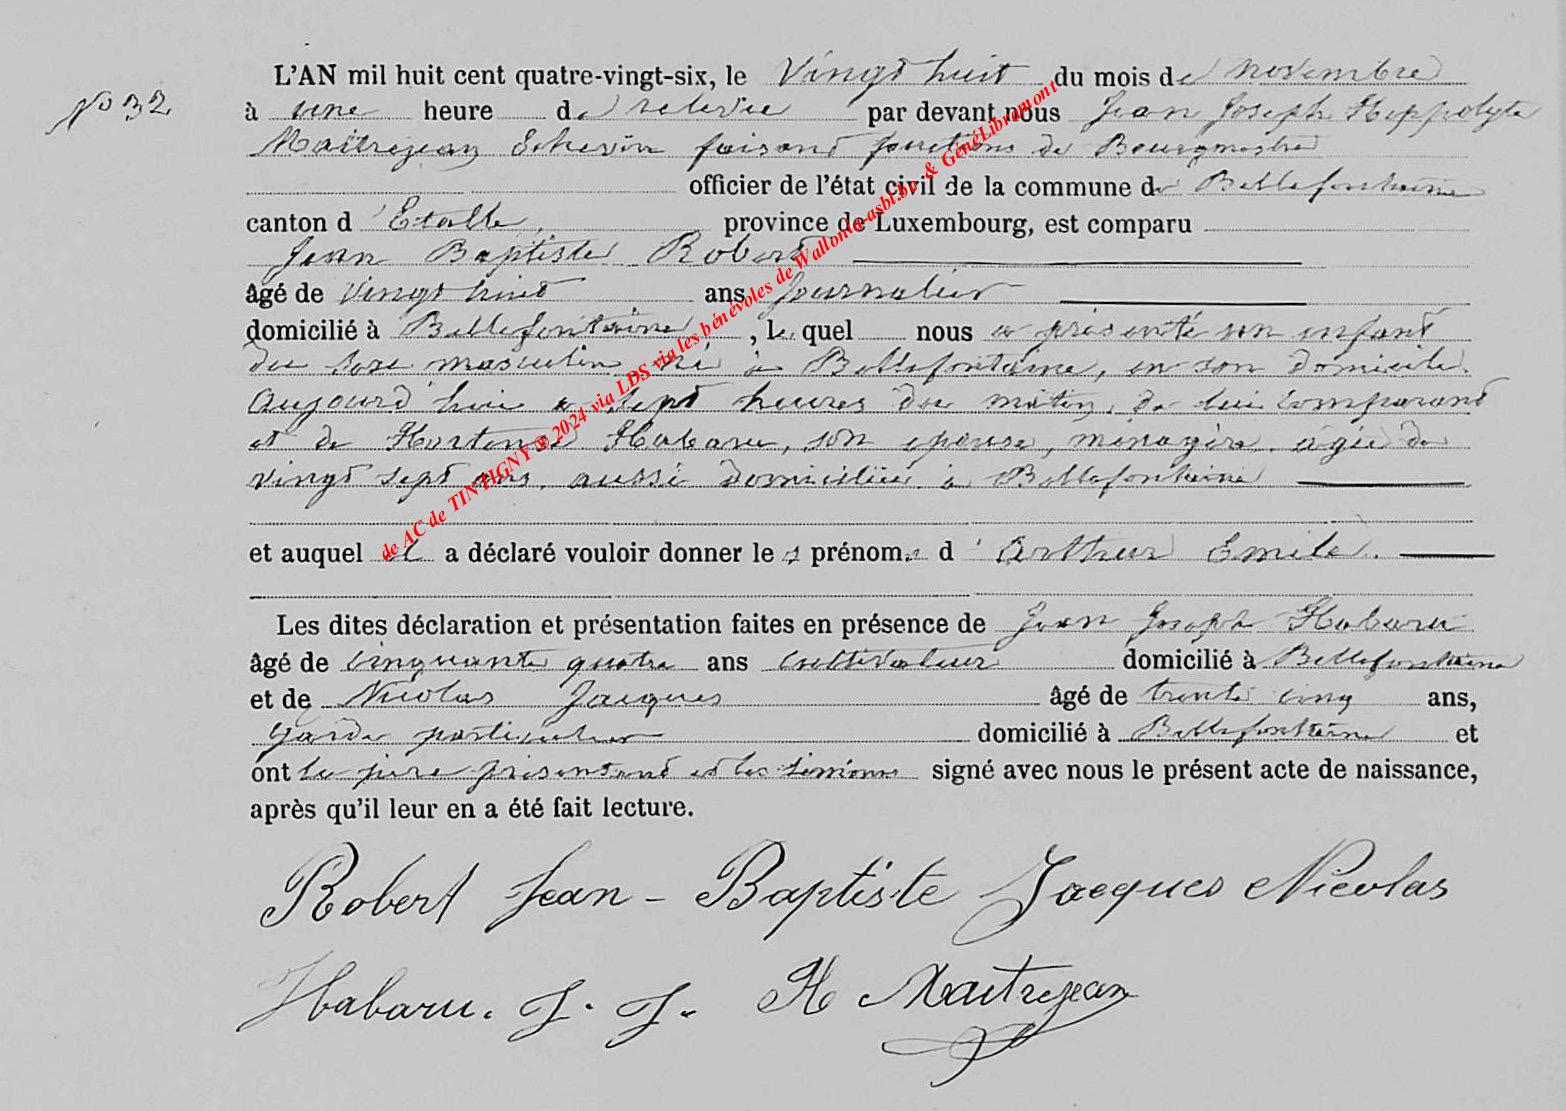 L'AN mil huit cent quatre-vingt-six, le Vingt huit du mois de novembre
N° 32
à une heure de relevée par devant nous Jean Joseph Hippolyte
Maitrejean Echevin faisant fonctions de Bourgmestre
officier de l'état civil de la commune de Bellefontaine
canton d'Etalle, province de Luxembourg, est comparu
Jean Baptiste Robert
âgé de vingt huit ans Journalier
domicilié à Bellefontaine, lequel nous a présenté un enfant
du sexe masculin né à Bellefontaine, en son domicile
aujourd'hui à sept heures du matin, de lui comparant
et de Hortense Habaru, son épouse, ménagère, agée de
vingt sept ans, aussi domiciliée à Bellefontaine
et auquel il a déclaré vouloir donner les prénoms d'Arthur Emile.
Les dites déclaration et présentation faites en présence de Jean Joseph Habaru
âgé de cinquante quatre ans cultivateur domicilié à Bellefontaine
et de Nicolas Jacques âgé de trente cinq ans,
Garde particulier domicilié à Bellefontaine et
ont le père présentant et les témoins signé avec nous le présent acte de naissance,
après qu'il leur en a été fait lecture.
Robert Jean-Baptiste Jacques Nicolas
Habaru. J. J. H Maitrejean
de AC de TINTIGNY ® 2024 via LDS via les bénévoles de Wallonia-asbl.be & GénéLibramont